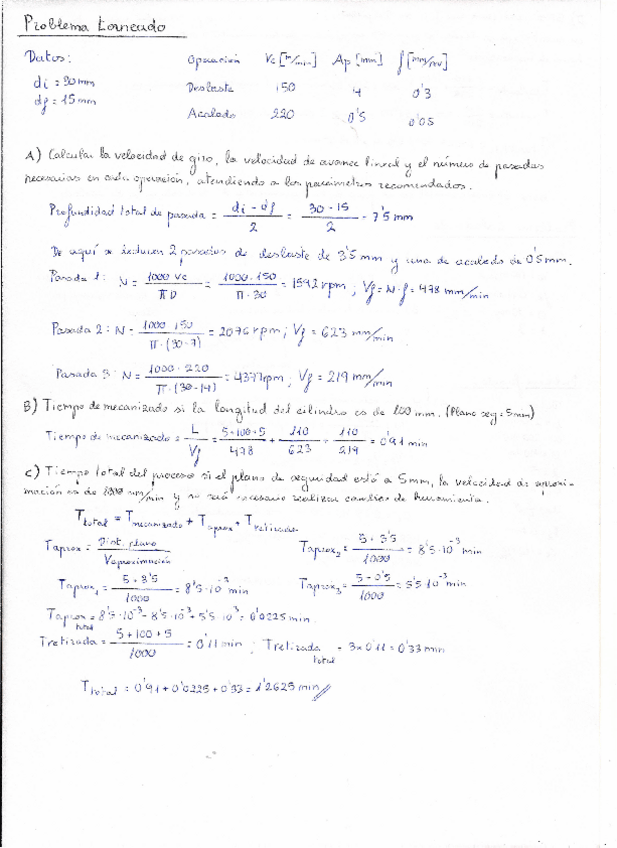 Problema torneado
Datos:
di = 30 mm
df = 15 mm
Operación Vc [m/min] Ap [mm] f [mm/rev]
Desbaste 150 4 0'3
Acabado 220 0'5 0'05
A) Calcular la velocidad de giro, la velocidad de avance lineal y el número de pasadas
necesarias en cada operación, atendiendo a los parámetros recomendados.
Profundidad total de pasada = (di - df)/2 = (30 - 15)/2 = 7'5 mm
De aquí se deducen 2 pasadas de desbaste de 3'5 mm y una de acabado de 0'5 mm.
Pasada 1: N = 1000 Vc/(π D) = 1000·150/(π·30) = 1592 rpm; Vf = N·f = 478 mm/min
Pasada 2: N = 1000·150/(π·(30-7)) = 2076 rpm; Vf = 623 mm/min
Pasada 3: N = 1000·220/(π·(30-14)) = 4377 rpm; Vf = 219 mm/min
B) Tiempo de mecanizado si la longitud del cilindro es de 100 mm. (Plano seg = 5mm)
Tiempo de mecanizado = L/Vf = (5+100+5)/478 + 110/623 + 110/219 = 0'91 min
C) Tiempo total del proceso si el plano de seguridad está a 5mm, la velocidad de aproxi-
mación es de 1000 mm/min y no será necesario realizar cambios de herramienta.
Ttotal = Tmecanizado + Taprox + Tretirada
Taprox = Dist. plano/Vaproximación
Taprox2 = (5+3'5)/1000 = 8'5·10⁻³ min
Taprox1 = (5+3'5)/1000 = 8'5·10⁻³ min
Taprox3 = (5+0'5)/1000 = 5'5·10⁻³ min
Taprox total = 8'5·10⁻³ + 8'5·10⁻³ + 5'5·10⁻³ = 0'0225 min.
Tretirada = (5+100+5)/1000 = 0'11 min; Tretirada total = 3×0'11 = 0'33 min
Ttotal = 0'91 + 0'0225 + 0'33 = 1'2625 min